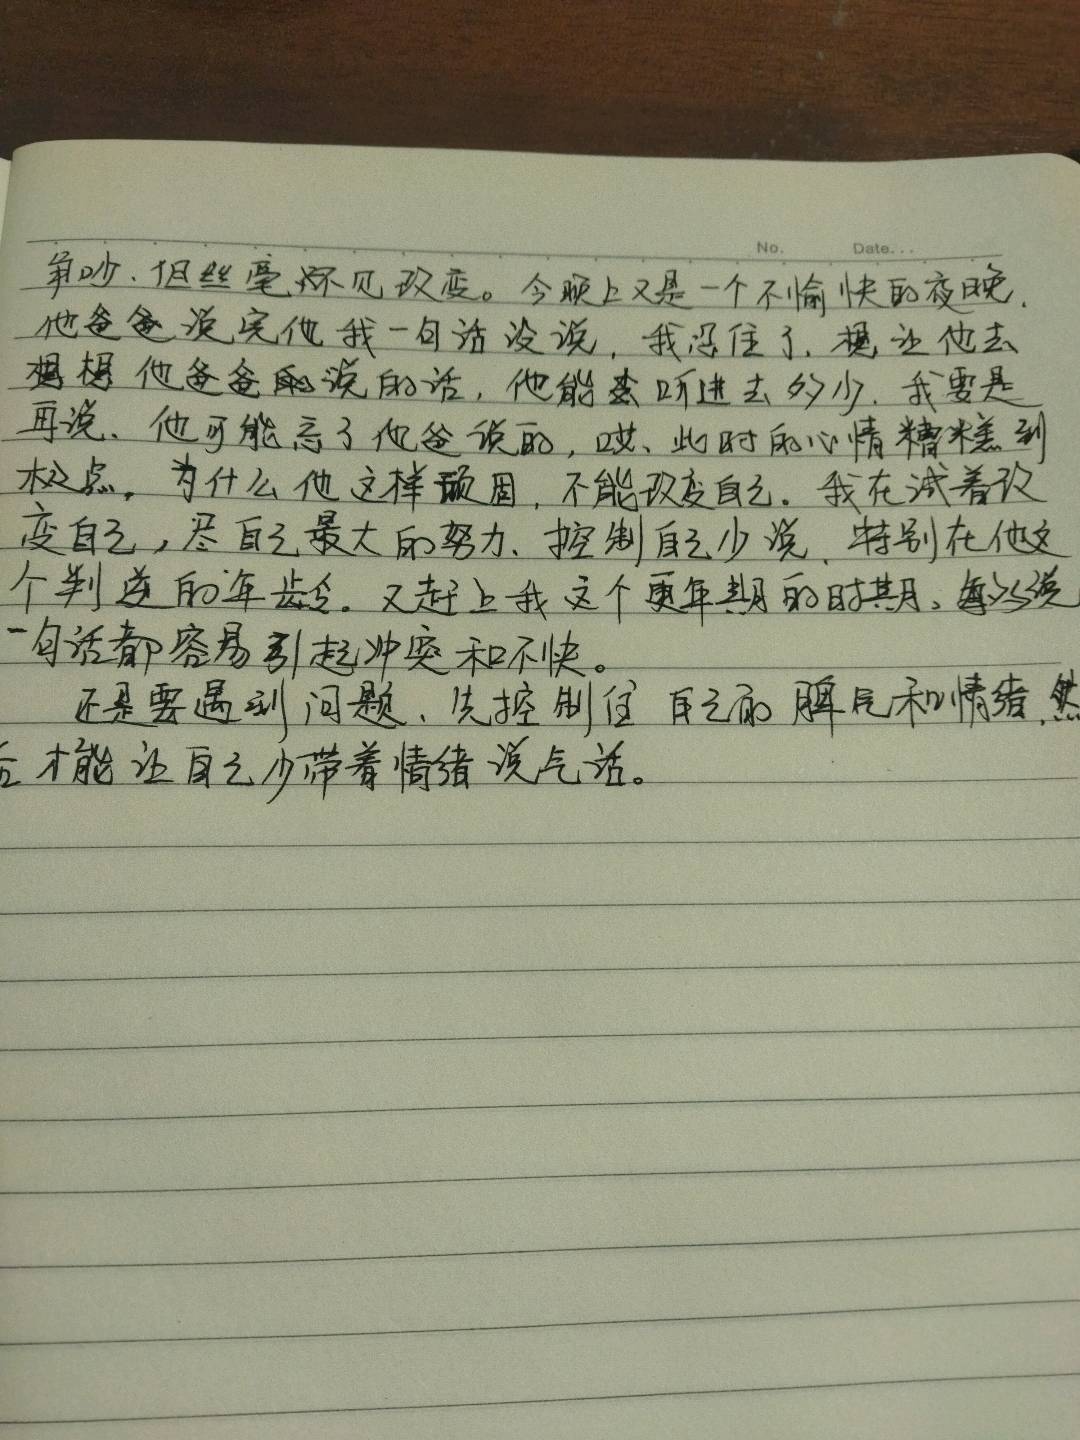 No. Date...
争吵、但丝毫不见改变。今晚上又是一个不愉快的夜晚,
他爸爸说完他我一句话没说,我忍住了、想让他去
想想他爸爸说的话,他能听进去多少、我要是
再说、他可能忘了他爸说的,哎、此时的心情糟糕到
极点。为什么他这样顽固,不能改变自己。我在试着改
变自己,尽自己最大的努力、控制自己少说、特别在他这
个判逆的年龄。又赶上我这个更年期的时期、每次说
一句话都容易引起冲突和不快。
还是要遇到问题、先控制住自己的脾气和情绪、然
后才能让自己少带着情绪说气话。